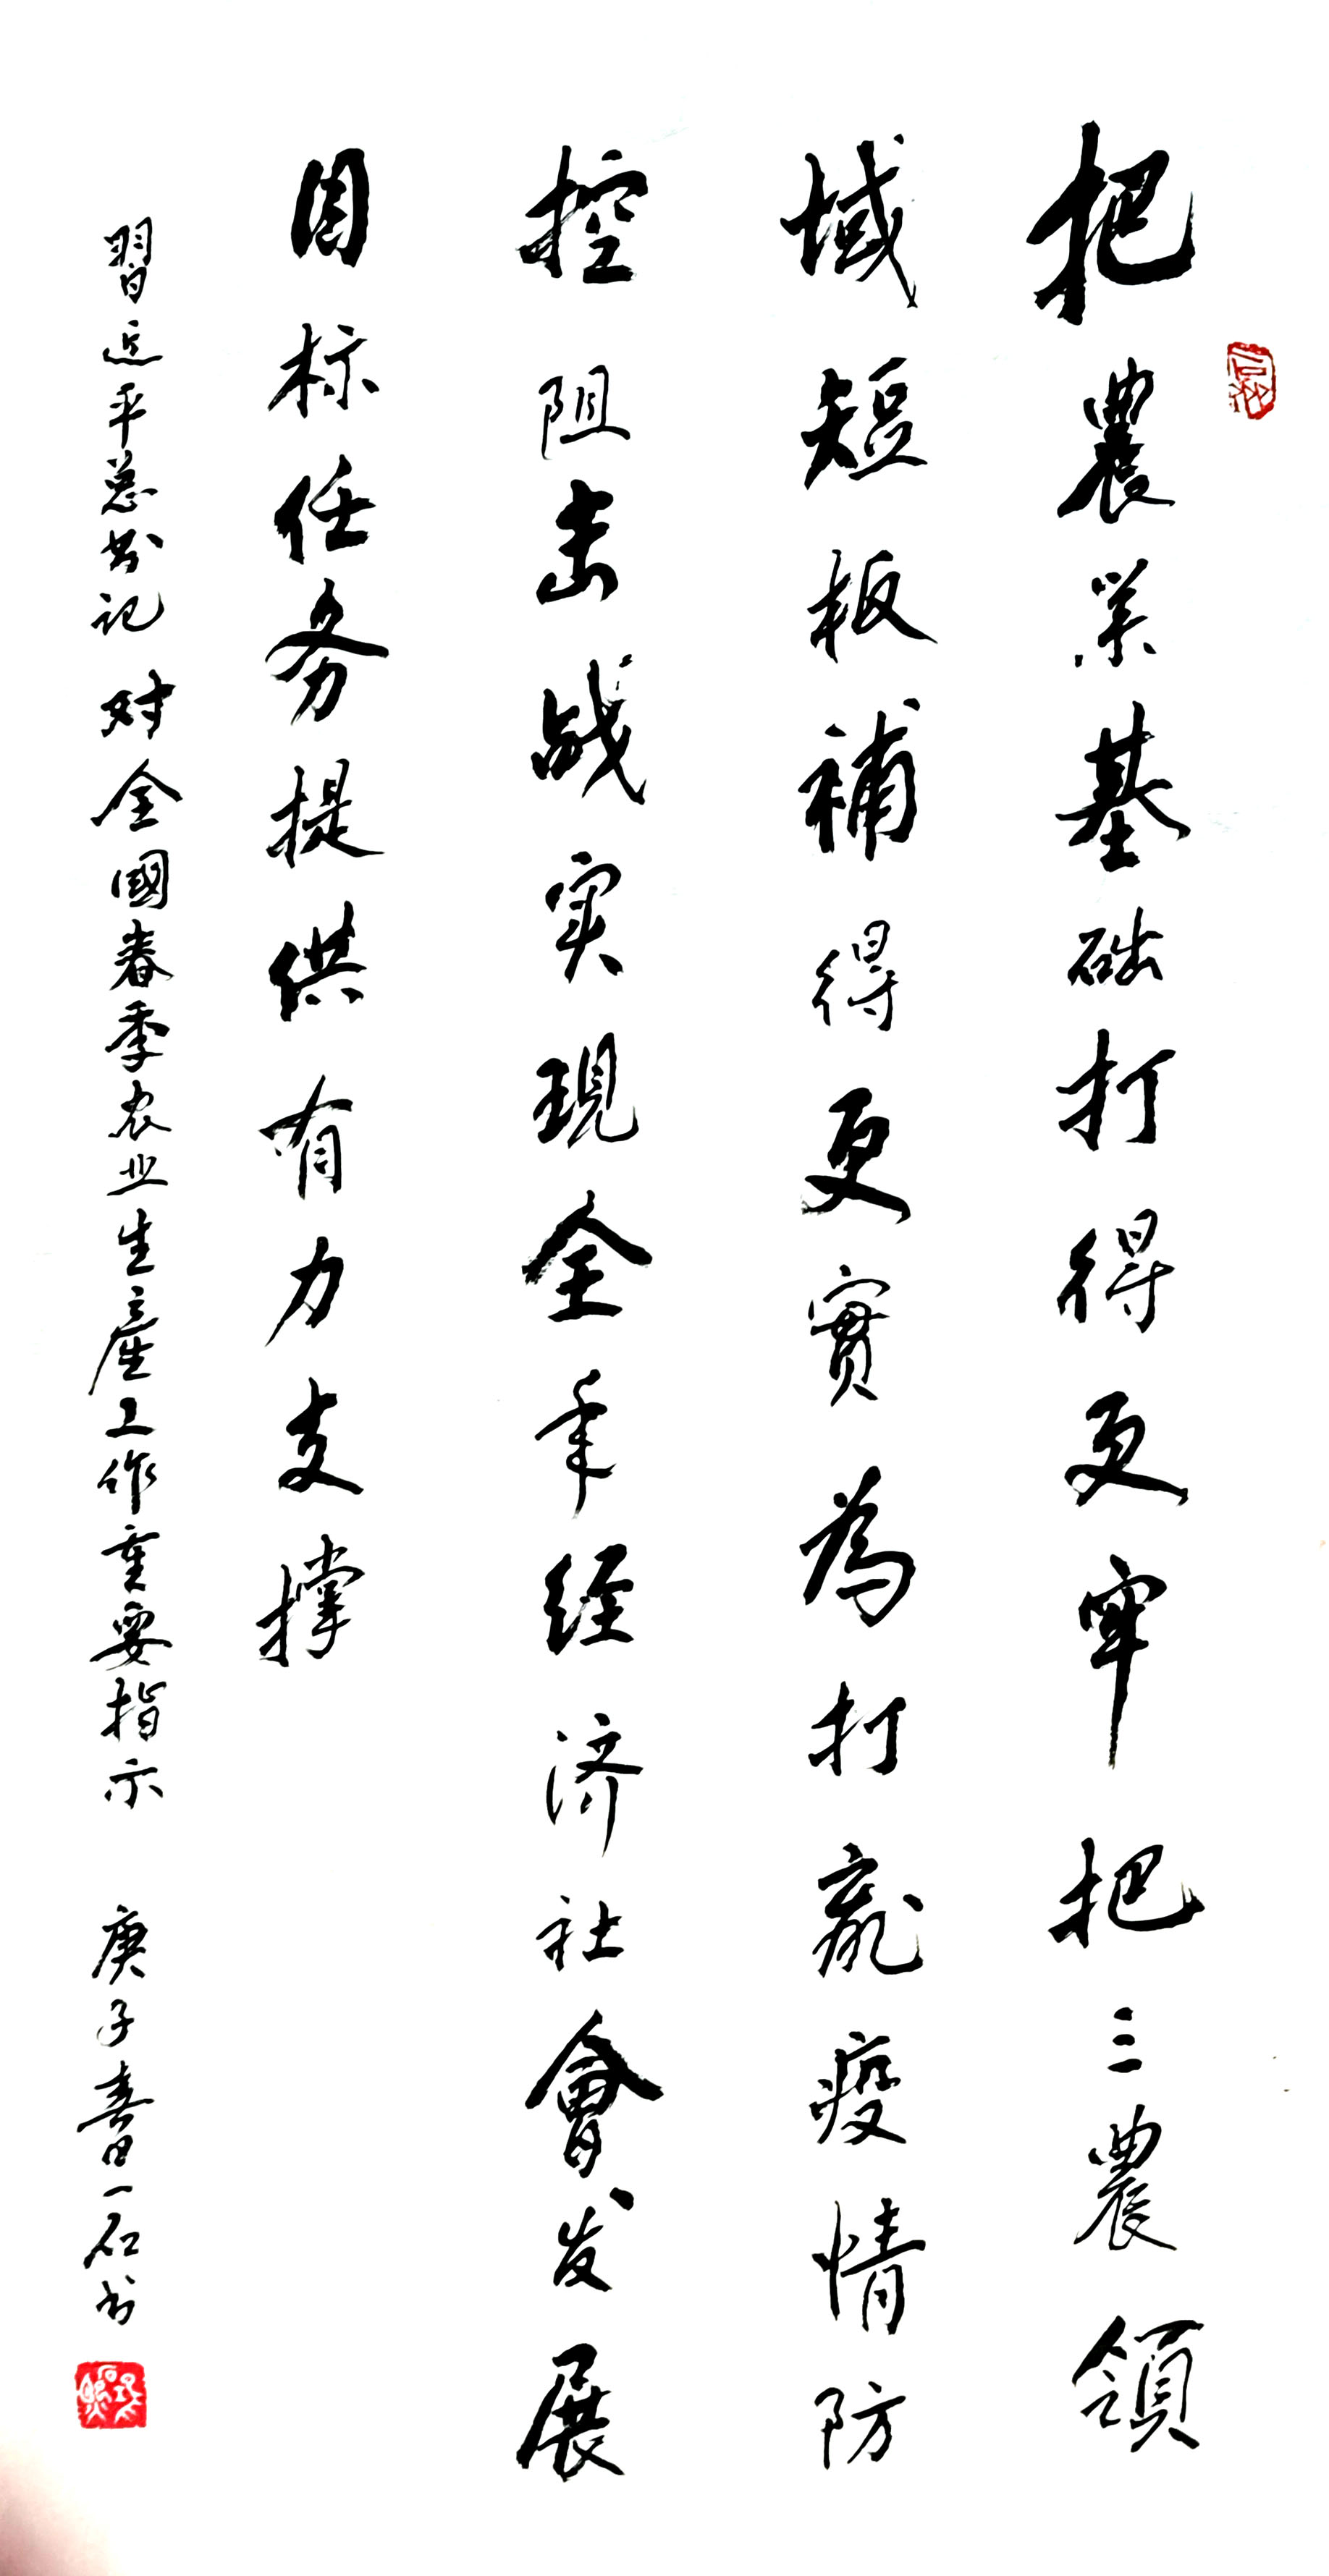 把農業基础打得更牢把三農領
域短板補得更實為打赢疫情防
控阻击战实現全年经济社會发展
目标任务提供有力支撑
習近平总书记对全國春季农业生產工作重要指示 庚子春一石书